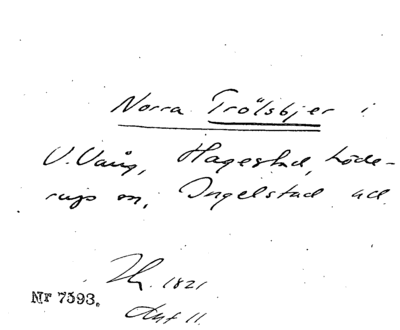 Norra Trölsbjer i
V. Vång, Hagestad, Löde-
rups sn, Ingelstad hd.
1821
Nr 7593.
Akt 11.